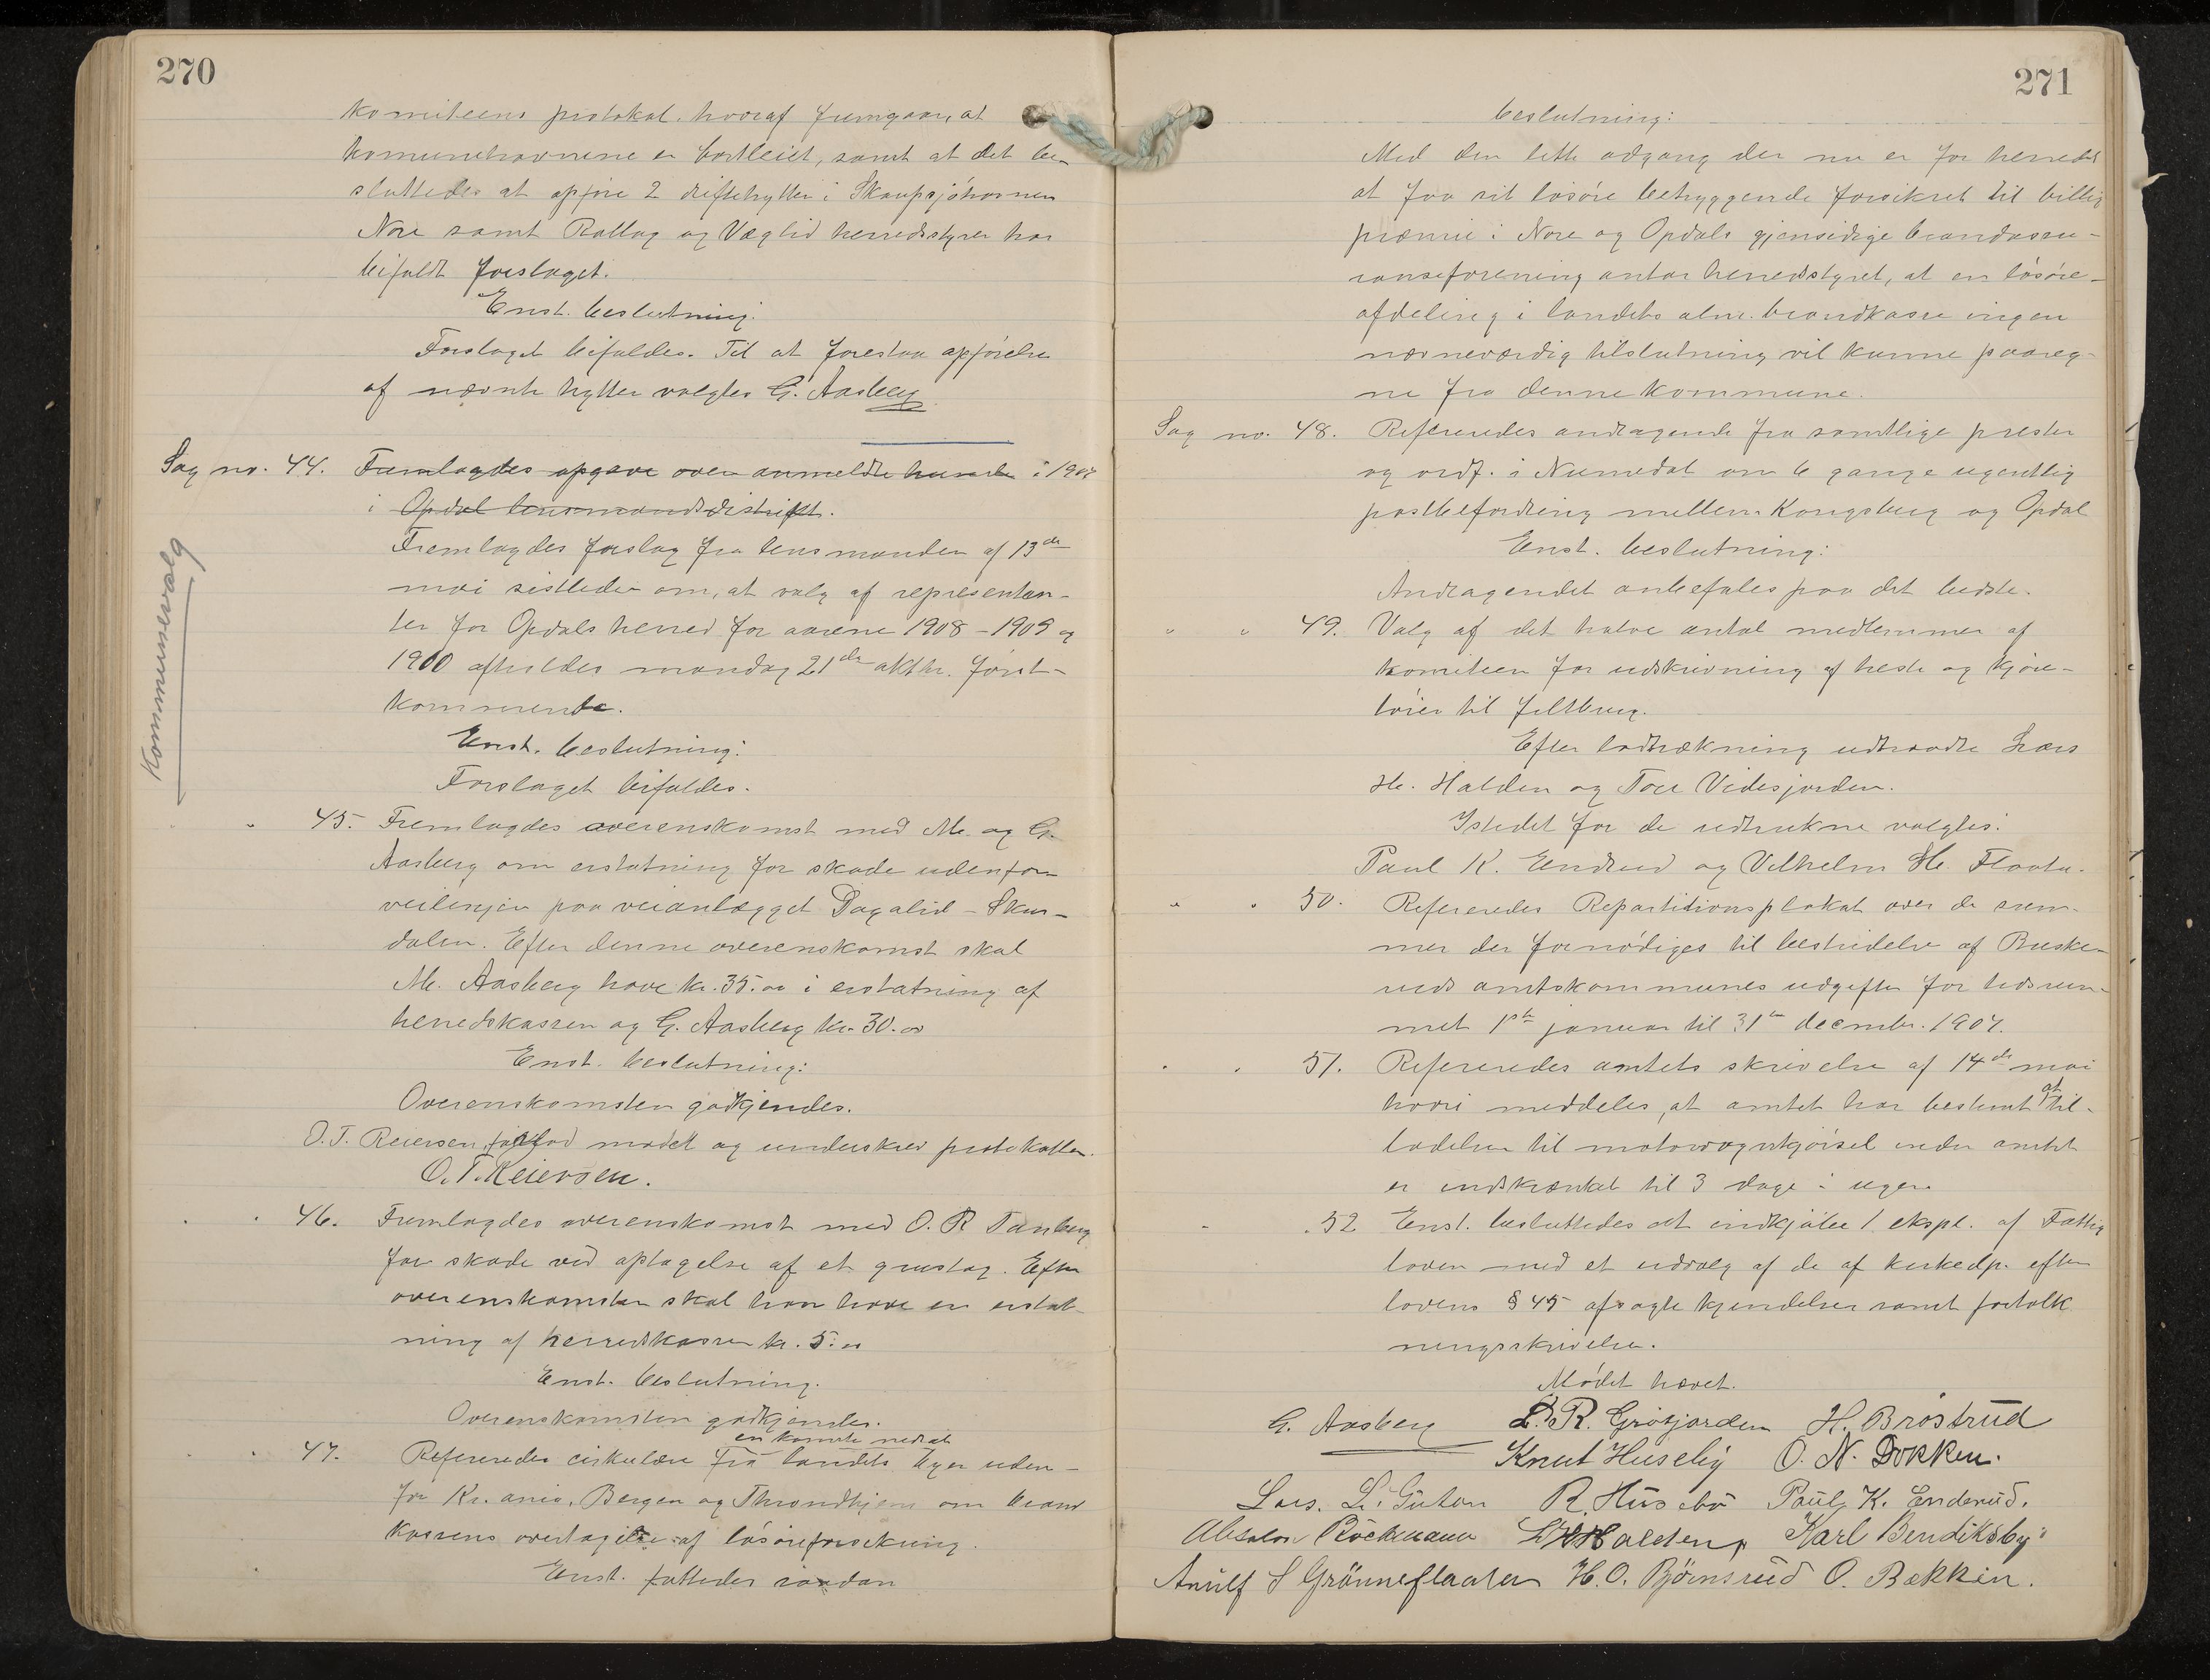 270
komiteens protokol. hvoraf fremgaar, at
komunehavnene er bortleiet, samt at det be-
sluttedes at opføre 2 driftehytter i Skaupsjöhavnen
Nore samt Rollag og Veglid herredsstyrer har
bifaldt forslaget.
Enst. beslutning:
Forslaget bifaldes. Til at forestaa opførelse
af nævnte hytter valgtes G. Aasberg
Sag no. 44. Fremlagdes opgave over anmeldte hunde i 1907
i Opdal lensmandsdistrikt.
Fremlagdes forslag fra lensmanden af 13de
mai sistleden om, at valg af representan-
ter for Opdals herred for aarene 1908 - 1909 og
1910 afholdes mandag 21de oktbr. først-
kommende.
Enst. beslutning:
Forslaget bifaldes.
Kommunevalg
" 45. Fremlagdes overenskomst med M. og G.
Aasberg om erstatning for skade udenfor
veilinjen paa veianlægget Dagalid - Skur-
dalen. Efter denne overenskomst skal
M. Aasberg have kr. 35.00 i erstatning af
herredskassen og G. Aasberg kr. 30.00
Enst. beslutning:
Overenskomsten godkjendes.
O.T. Reiersen forlod mødet og underskrev protokollen.
O.T. Reiersen.
" " 46. Fremlagdes overenskomst med O. R Tanberg
for skade ved optagelse af et grustag. Efter
overenskomsten skal han have en erstat-
ning af herredskassen kr. 5.00
Enst. beslutning.
Overenskomsten godkjendes.
en komite nedsat
" " 47. Refereredes cirkulære fra landets byer uden-
for Kr.ania, Bergen og Throndhjem om brand
kassens overtagelse af løsøreforsikring.
Enst. fattedes saadan
271
beslutning:
Med den lette adgang der nu er for herredet
at faa sit løsøre betryggende forsikret til billig
præmie i Nore og Opdals gjensidige brandassu-
ranseforening antar herredsstyret, at en løsøre-
afdeling i landets alm. brandkasse ingen
nævneværdig tilslutning vil kunne paareg-
ne fra denne kommune.
Sag no. 48. Refereredes andragende fra samtlige prester
og ordf. i Numedal om 6 gange ugentlig
postbefordring mellem Kongsberg og Opdal
Enst. beslutning:
Andragendet anbefales paa det bedste.
" " 49. Valg af det halve antal medlemmer af
komiteen for udskrivning af heste og kjøre-
tøier til feltbrug.
Efter lodtrækning udtraadte Lars
H. Halden og Tore Videsjorden.
Istedet for de udtrukne valgtes:
Paul K. Endrud og Vilhelm H. Flaata.
" " 50. Refereredes Repartitionsplakat over de sum-
mer der fornødiges til bestridelse af Buske-
ruds amtskommunes udgifter for tidsrum-
met 1ste januar til 31te decembr. 1907.
" " 51. Refereredes amtets skrivelse af 14de mai
hvori meddeles, at amtet har bestemt at til-
ladelsen til motorvognkjørsel inden amtet
er indskrænket til 3 dage i ugen
" . 52 Enst. besluttedes at indkjøbe 1 ekspl. af Fattig
loven med et udvalg af de af kirkedp. efter
lovens § 45 afsagte kjendelser samt fortolk
ningsskrivelse.
Mødet hævet.
G. Aasberg L. R. Grøsjorden H. Brøstrud
Knut Huseby O. N. Dokken.
Lars. L. Guton R. Husebø Paul K. Enderud.
Absalon Böckmann L H Halden, Karl Bendiksby
Anulf S Grønneflaaten H. O. Bjørnsrud O. Bakken.